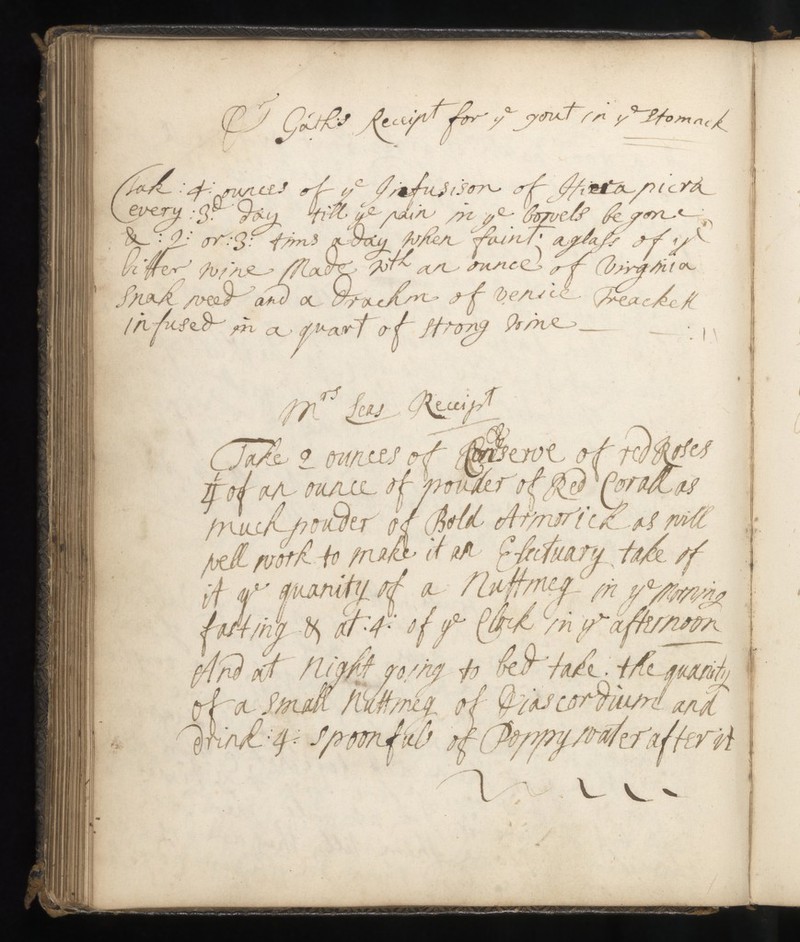 Dr Gath's Receipt for ye gout in ye stomack
Tak :4: ounces of ye Infusison of Hiera picra
every :3d day till ye pain in ye bowels be gone
& :2: or :3: tims a day when faint a glass of ye
bitter wine Made wth an ounce of Virginia
Snak weed and a drachm of venice Treackell
infused in a quart of strong wine
Mrs Leas Receipt
Take 2 ounces of Conserve of red Roses
1/4 of an ounce of pouder of Red Corall as
much pouder of Bold Armorick as will
well work to make it an Electuary take of
it ye quanity of a Nuttmeg in ye Morning
fasting & at :4: of ye Clock in ye afternoon
And at Night going to bed take the quanity
of a small Nuttmeg of Diascordium and
drink :4: spoonfuls of Poppy water after it